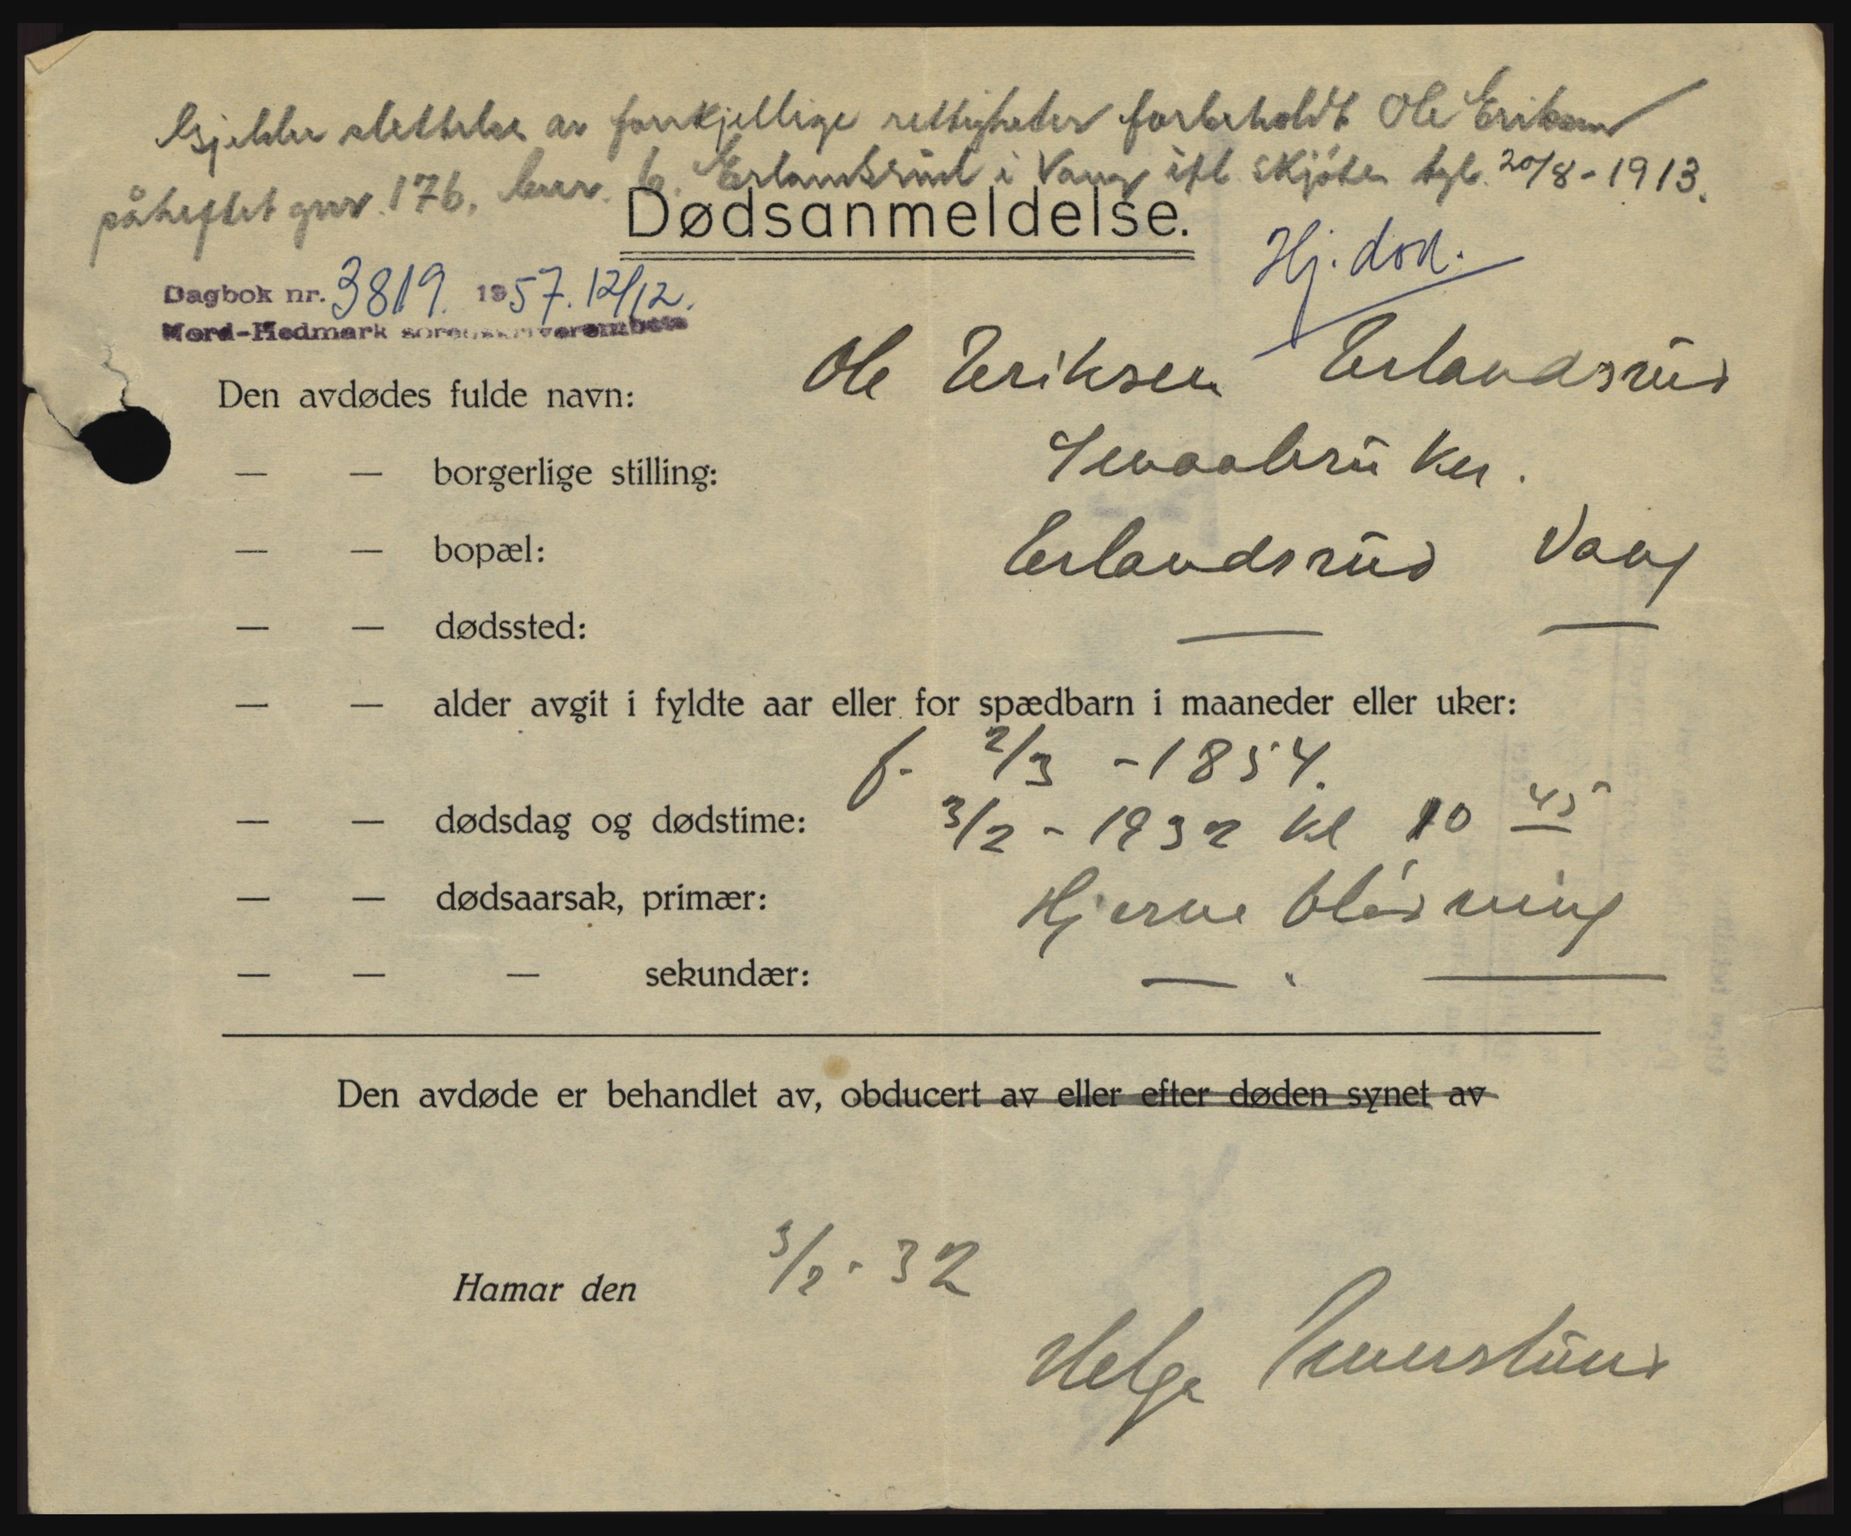 Gjelder slettelse av forskjellige rettigheter forbeholdt Ole Eriksen
påheftet gnr. 176, bnr. 6. Erlandsrud i Vang ifl. skjøte tgl. 20/8-1913.
Dødsanmeldelse.
Hj. dok.
Dagbok nr. 3819. 1957. 12/12.
Nord-Hedmark sorenskriverembete
Den avdødes fulde navn: Ole Eriksen Erlandsrud
— — borgerlige stilling: Smaabruker.
— — bopæl: Erlandsrud Vang
— — dødssted: — —
— — alder avgit i fyldte aar eller for spædbarn i maaneder eller uker:
f. 2/3 -1854.
— — dødsdag og dødstime: 3/2 - 1932 kl 10 45
— — dødsaarsak, primær: Hjerneblødning
— — — sekundær: — " —
Den avdøde er behandlet av, obducert av eller efter døden synet av
Hamar den 3/2-32
Helge